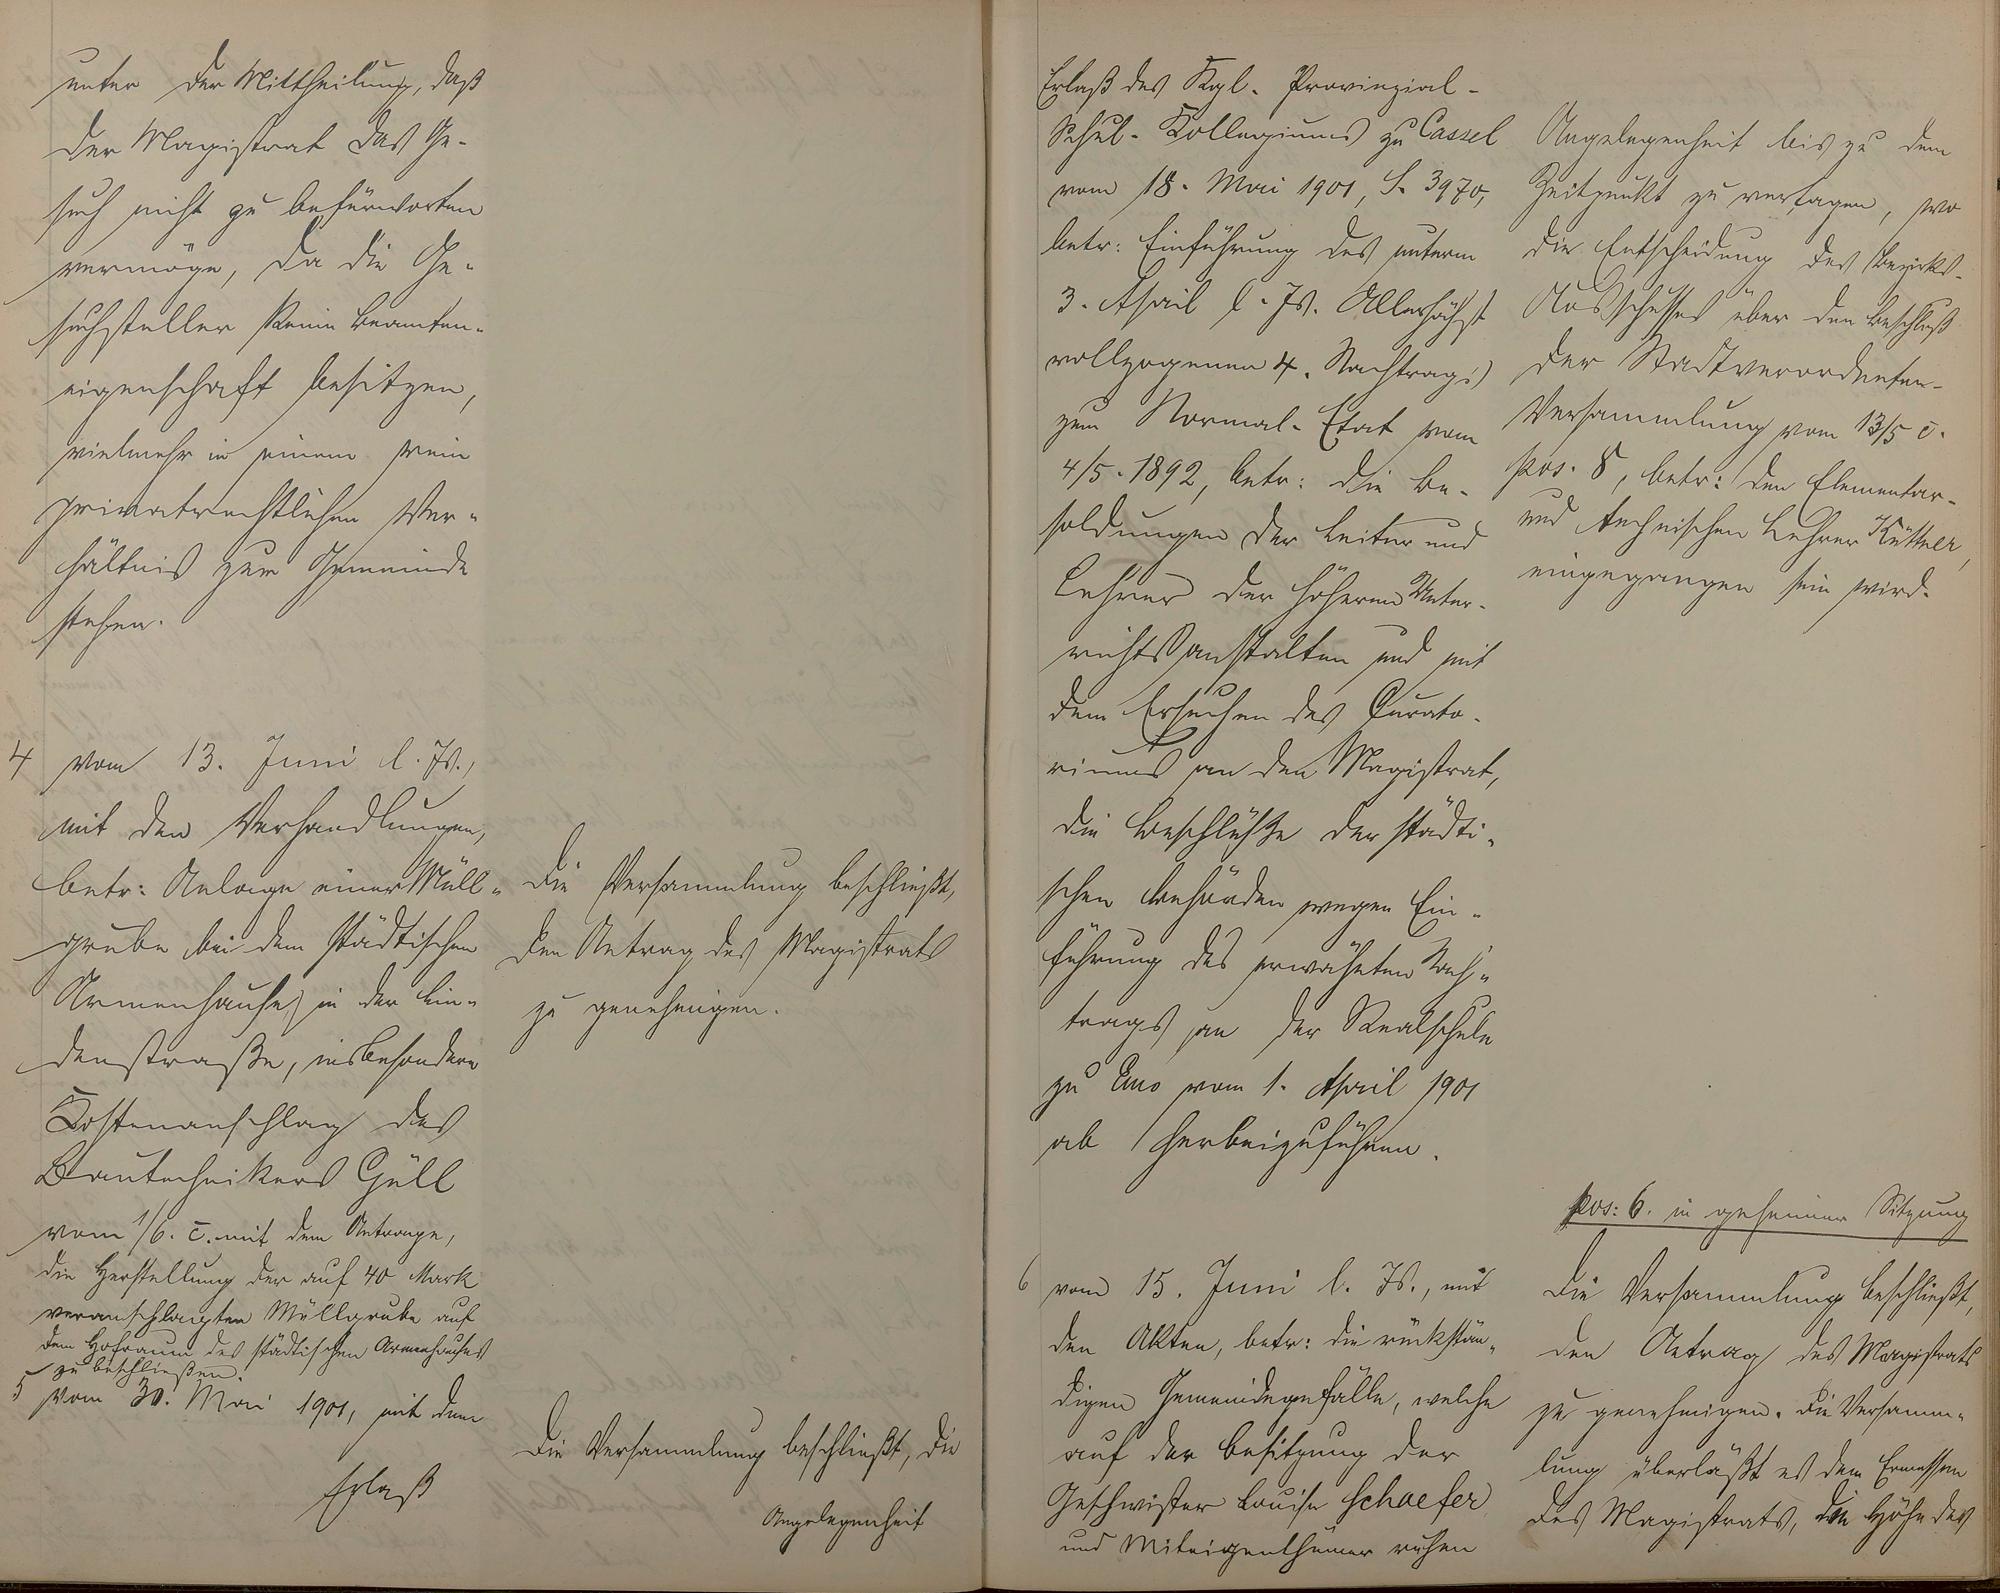 unter der Mittheilung, daß
der Magistrat das Ge-
such nicht zu befürworten
vermöge, da die Ge-
suchsteller keine Beamten-
eigenschaft besitzen,
vielmehr in einem rein
privatrechtlichen Ver-
hältnis zur Gemeinde
stehen.
4 vom 13. Juni l. Js.,
mit den Verhandlungen,
betr: Anlage einer Müll-
grube bei dem städtischen
Armenhause in der Lin-
denstraße, insbesondere
Kostenanschlag des
Bautechnikers Güll
vom 1/6. c. mit dem Antrage,
die Herstellung der auf 40 Mark
veranschlagten Müllgrube auf
dem Hofraum des städtischen Armenhauses
zu beschließen.
5 vom 30. Mai 1901, mit dem
Erlaß
Die Versammlung beschließt,
den Antrag des Magistrats
zu genehmigen.
Die Versammlung beschließt, die
Angelegenheit
Erlaß des Kgl. Provinzial-
Schul-Kollegiums zu Cassel
vom 18. Mai 1901, S. 3970,
betr: Einführung des unterm
3. April l. Js. Allerhöchst
vollzogenen 4. Nachtrags
zum Normal-Etat vom
4/5. 1892, betr: die Be-
soldungen der Leiter und
Lehrer der höheren Unter-
richtsanstalten und mit
dem Ersuchen des Curato-
riums an den Magistrat,
die Beschlüße der städti-
schen Behörden wegen Ein-
führung des erwähnten Nach-
trags an der Realschule
zu Ems vom 1. April 1901
ab herbeizuführen.
6 vom 15. Juni l. Js., mit
den Akten, betr: die rückstän-
digen Gemeindegefälle, welche
auf der Besitzung der
Geschwister Louise Schaefer
und Miteigenthümer ruhen
Angelegenheit bis zu dem
Zeitpunkt zu vertagen, wo
die Entscheidung des Bezirks-
Ausschusses über den Beschluß
der Stadtverordneten-
Versammlung vom 13/5 c.
pos. 8, betr: den Elementar-
und technischen Lehrer Küttner,
eingegangen sein wird.
pos: 6. in geheimer Sitzung
Die Versammlung beschließt,
den Antrag des Magistrats
zu genehmigen. Die Versamm-
lung überläßt es dem Ermessen
des Magistrats, die Höhe des